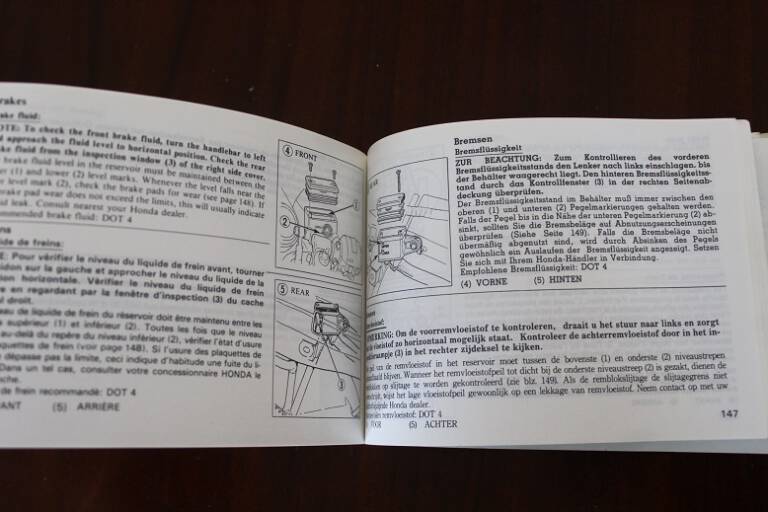 rakes
ake fluid:
OTE: To check the front brake fluid, turn the handlebar to left
d approach the fluid level to horizontal position. Check the rear
ake fluid from the inspection window (3) of the right side cover.
brake fluid level in the reservoir must be maintained between the
er (1) and lower (2) level marks. Whenever the fluid falls near the
er level mark (2), check the brake pads for wear (see page 148). If
rake pad wear does not exceed the limits, this will usually indicate
id leak. Consult nearest your Honda dealer.
mmended brake fluid: DOT 4
ns
uide de freins:
E: Pour vérifier le niveau du liquide de frein avant, tourner
idon sur la gauche et approcher le niveau du liquide de la
ion horizontale. Vérifier le niveau du liquide de frein
e en regardant par la fenêtre d'inspection (3) du cache
l droit.
eau de liquide de frein du réservoir doit être maintenu entre les
s supérieur (1) et inférieur (2). Toutes les fois que le niveau
au-delà du repère du niveau inférieur (2), vérifier l'état d'usure
quettes de frein (voir page 148). Si l'usure des plaquettes de
e dépasse pas la limite, ceci indique d'habitude une fuite du li-
Dans un tel cas, consulter votre concessionnaire HONDA le
che.
de frein recommandé: DOT 4
ANT (5) ARRIÈRE
(4) FRONT
(1)
(2)
(5) REAR
(3)
Bremsen
Bremsflüssigkeit
ZUR BEACHTUNG: Zum Kontrollieren des vorderen
Bremsflüssigkeitsstands den Lenker nach links einschlagen, bis
der Behälter waagerecht liegt. Den hinteren Bremsflüssigkeitss-
stand durch das Kontrollfenster (3) in der rechten Seitenab-
deckung überprüfen.
Der Bremsflüssigkeitsstand im Behälter muß immer zwischen den
oberen (1) und unteren (2) Pegelmarkierungen gehalten werden.
Falls der Pegel bis in die Nähe der unteren Pegelmarkierung (2) ab-
sinkt, sollten Sie die Bremsbeläge auf Abnutzungserscheinungen
überprüfen (Siehe Seite 149). Falls die Bremsbeläge nicht
übermäßig abgenutzt sind, wird durch Absinken des Pegels
gewöhnlich ein Auslaufen der Bremsflüssigkeit angezeigt. Setzen
Sie sich mit Ihrem Honda-Händler in Verbindung.
Empfohlene Bremsflüssigkeit: DOT 4
(4) VORNE (5) HINTEN
MERKING: Om de voorremvloeistof te kontroleren, draait u het stuur naar links en zorgt
vloeistof zo horizontaal mogelijk staat. Kontroleer de achterremvloeistof door in het in-
(3) in het rechter zijdeksel te kijken.
peil van de remvloeistof in het reservoir moet tussen de bovenste (1) en onderste (2) niveaustrepen
blijven. Wanneer het remvloeistofpeil tot dicht bij de onderste niveaustreep (2) is gezakt, dienen de
op slijtage te worden gekontroleerd (zie blz. 149). Als de remblokslijtage de slijtagegrens niet
wijst het lage vloeistofpeil gewoonlijk op een lekkage van remvloeistof. Neem contact op met uw
Honda dealer.
remvloeistof: DOT 4
VOOR (5) ACHTER
147